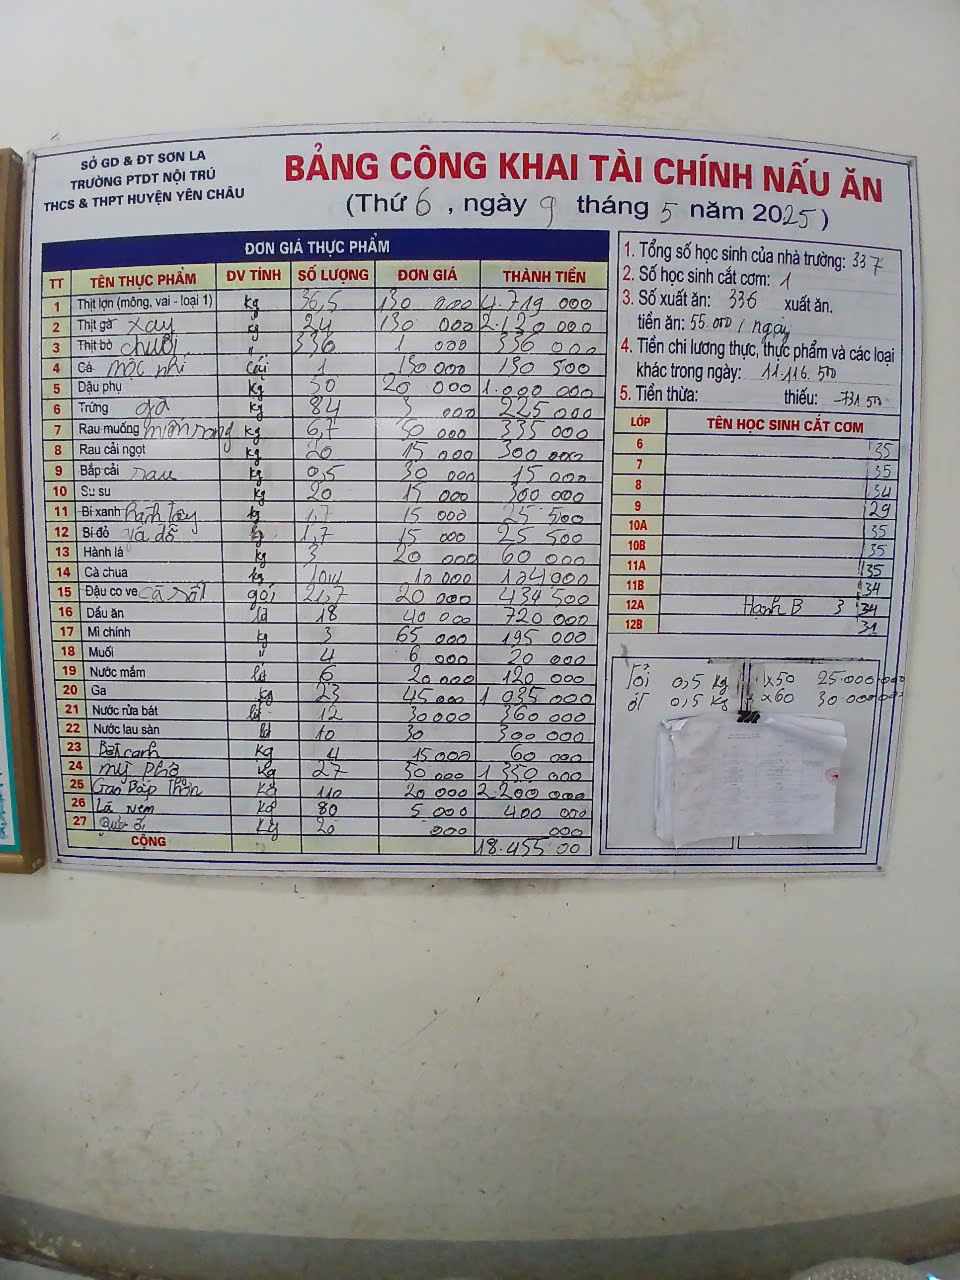 SỞ GD & ĐT SƠN LA
TRƯỜNG PTDT NỘI TRÚ
THCS & THPT HUYỆN YÊN CHÂU
BẢNG CÔNG KHAI TÀI CHÍNH NẤU ĂN
(Thứ 6, ngày 9 tháng 5 năm 2025)
ĐƠN GIÁ THỰC PHẨM
TT TÊN THỰC PHẨM ĐV TÍNH SỐ LƯỢNG ĐƠN GIÁ THÀNH TIỀN
1 Thịt lợn (mông, vai - loại 1) kg 36,5 130 000 4.719 000
2 Thịt gà xay kg 24 130 000 2.130 000
3 Thịt bò chuối " 336 1 000 336 000
4 Cá mộc nhĩ cái 1 150 000 150 500
5 Đậu phụ kg 50 20 000 1.000 000
6 Trứng gà kg 84 3 000 225 000
7 Rau muống miến rong kg 6,7 50 000 335 000
8 Rau cải ngọt kg 20 15 000 300 000
9 Bắp cải rau kg 0,5 30 000 15 000
10 Su su kg 20 15 000 300 000
11 Bí xanh hành tây kg 1,7 15 000 25 500
12 Bí đỏ giá đỗ kg 1,7 15 000 25 500
13 Hành lá kg 3 20 000 60 000
14 Cà chua kg 10,4 10 000 104 000
15 Đậu co ve cà sốt gói 21,7 20 000 434 500
16 Dầu ăn lít 18 40 000 720 000
17 Mì chính kg 3 65 000 195 000
18 Muối " 4 6 000 20 000
19 Nước mắm lít 6 20 000 120 000
20 Ga kg 23 45 000 1 035 000
21 Nước rửa bát lít 12 30 000 360 000
22 Nước lau sàn lít 10 30 300 000
23 Bột canh kg 4 15 000 60 000
24 mỳ phở kg 27 50 000 1 350 000
25 Gạo Bắp thơn kg 110 20 000 2.200 000
26 Lá nem kg 80 5 000 400 000
27 ổi kg 20 000 000
CỘNG 18.455 00
1. Tổng số học sinh của nhà trường: 337
2. Số học sinh cắt cơm: 1
3. Số xuất ăn: 336 xuất ăn.
tiền ăn: 55.000 / ngày
4. Tiền chi lương thực, thực phẩm và các loại
khác trong ngày: 11.116.500
5. Tiền thừa: thiếu: -731.50
LỚP TÊN HỌC SINH CẮT CƠM
6 35
7 35
8 34
9 29
10A 35
10B 35
11A 35
11B 34
12A Hạnh B 3 34
12B 31
Tỏi 0,5 kg x50 25.000
ớt 0,5 kg x60 30.000